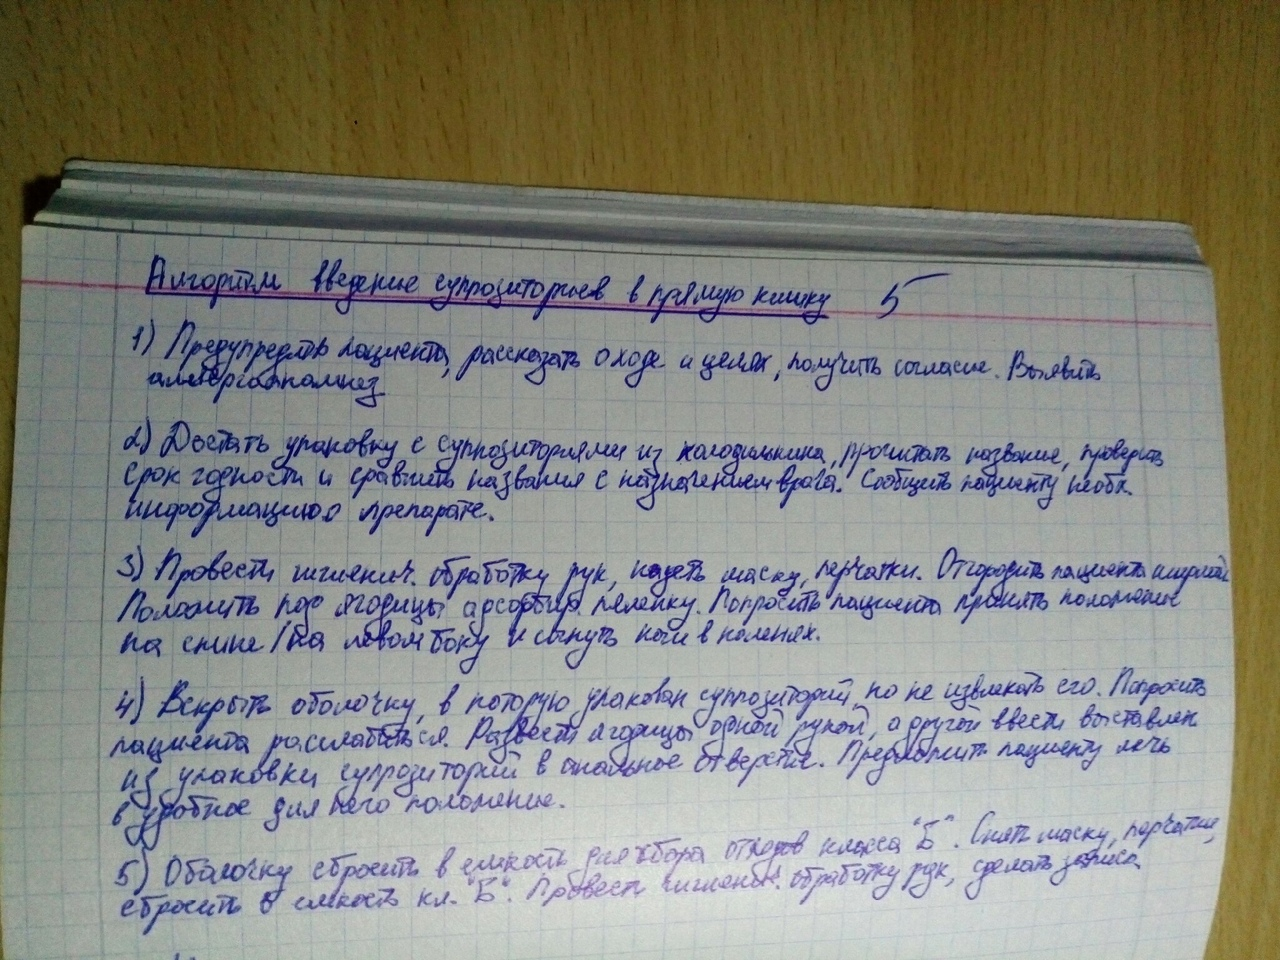 Алгоритм введение суппозиториев в прямую кишку 5
1) Предупредить пациента, рассказать о ходе и целях, получить согласие. Выявить
аллергоанамнез
2) Достать упаковку с суппозиториями из холодильника, прочитать название, проверить
срок годности и сравнить названия с назначением врача. Сообщить пациенту необх.
информацию о препарате.
3) Провести гигиенич. обработку рук, надеть маску, перчатки. Отгородить пациента ширмой
Положить под ягодицы адсорбир. пеленку. Попросить пациента принять положение
на спине / на левом боку и согнуть ноги в коленях.
4) Вскрыть оболочку, в которую упакован суппозиторий, но не извлекать его. Попросить
пациента расслабиться. Развести ягодицы одной рукой, а другой ввести выставлен
из упаковки суппозиторий в анальное отверстие. Предложить пациенту лечь
в удобное для него положение.
5) Оболочку сбросить в емкость для сбора отходов класса "Б". Снять маску, перчатки,
сбросить в емкость кл. "Б". Провести гигиенич. обработку рук, сделать записи